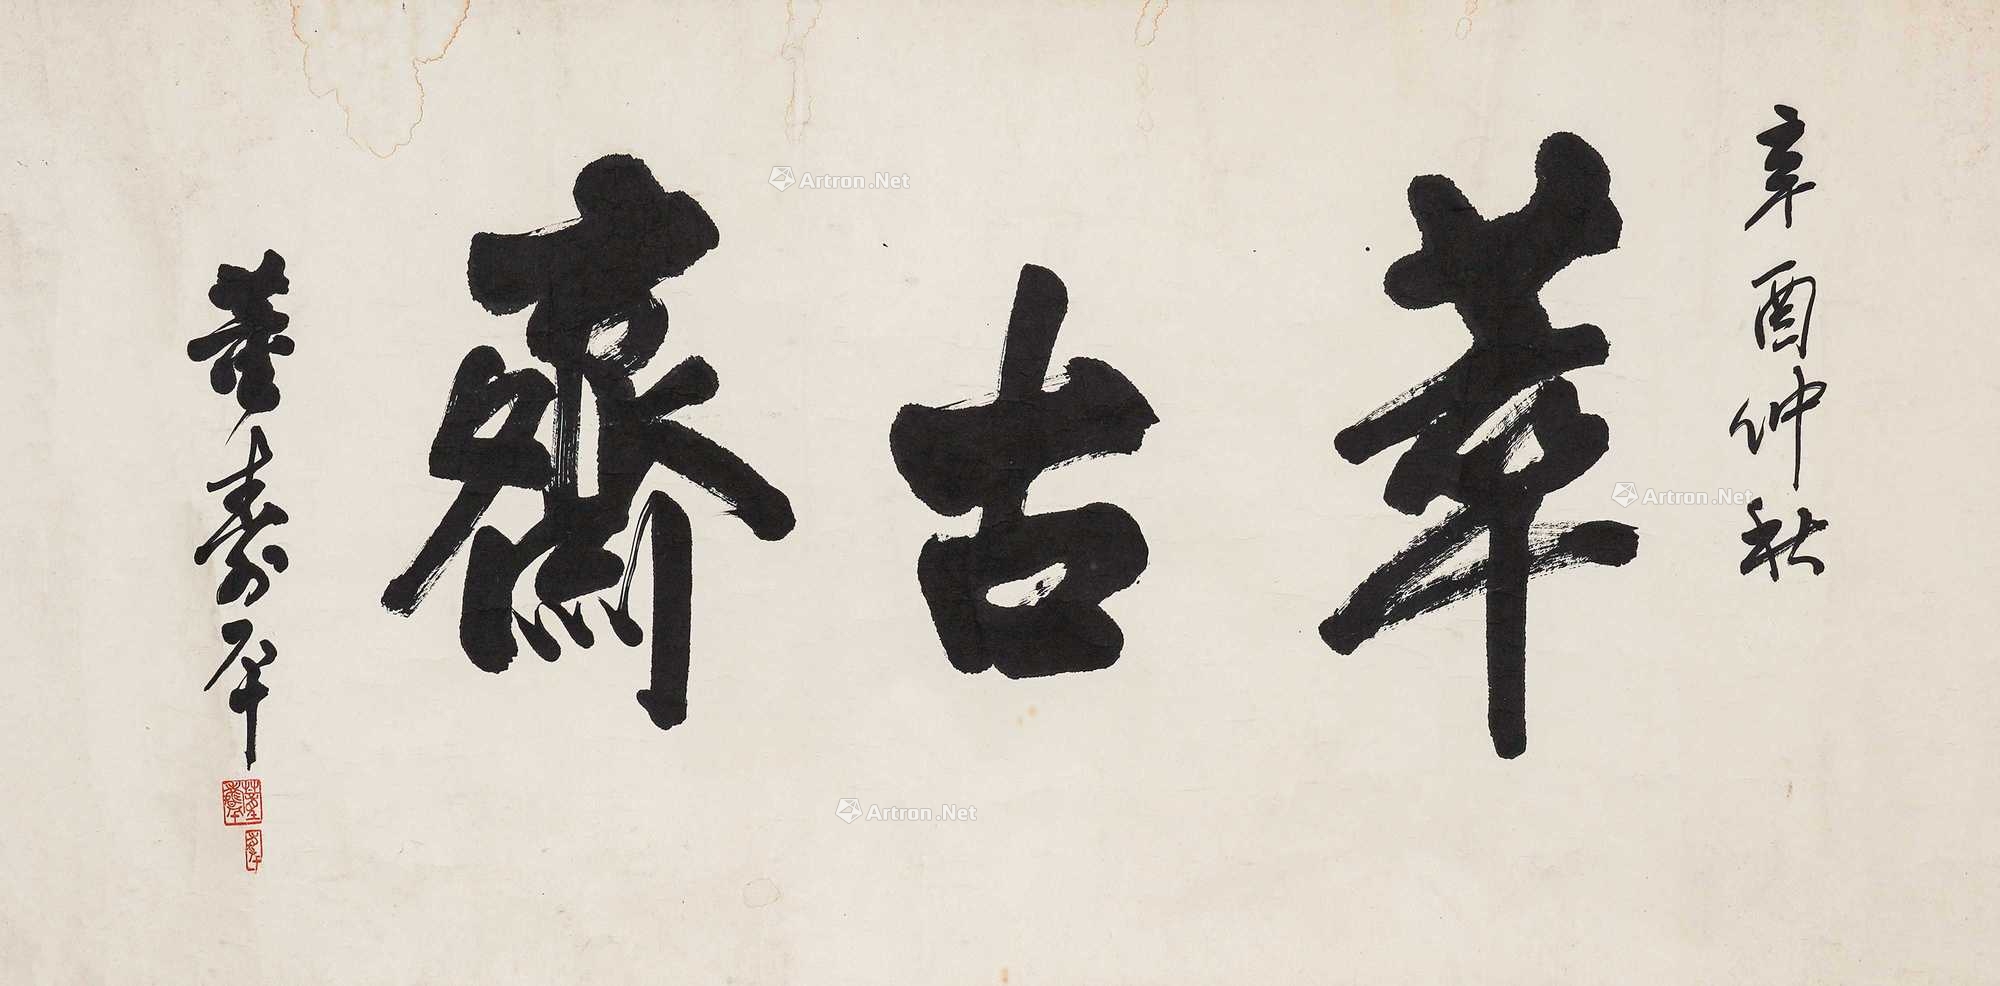 辛酉仲秋
萃古齋
董壽平
Artron.Net
Artron.Net
Artron.Net